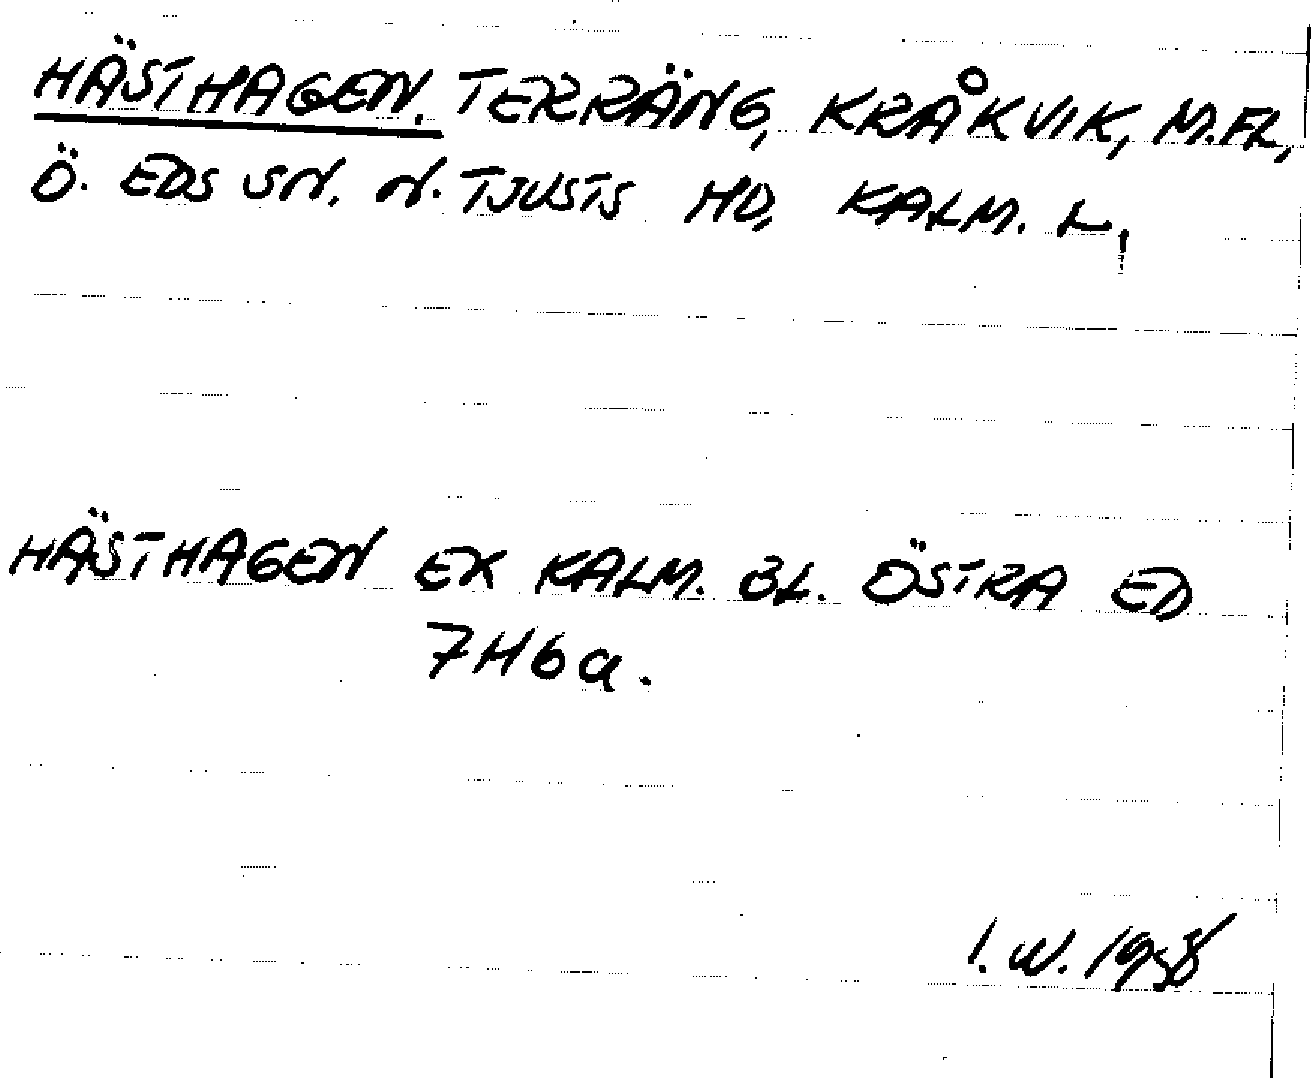 HÄSTHAGEN. TERRÄNG, KRÅKVIK, M.FL,
Ö. EDS SN. N. TJUSTS HD, KALM. L,
HÄSTHAGEN EK KALM. BL. ÖSTRA ED
7H6a.
I. W. 1958